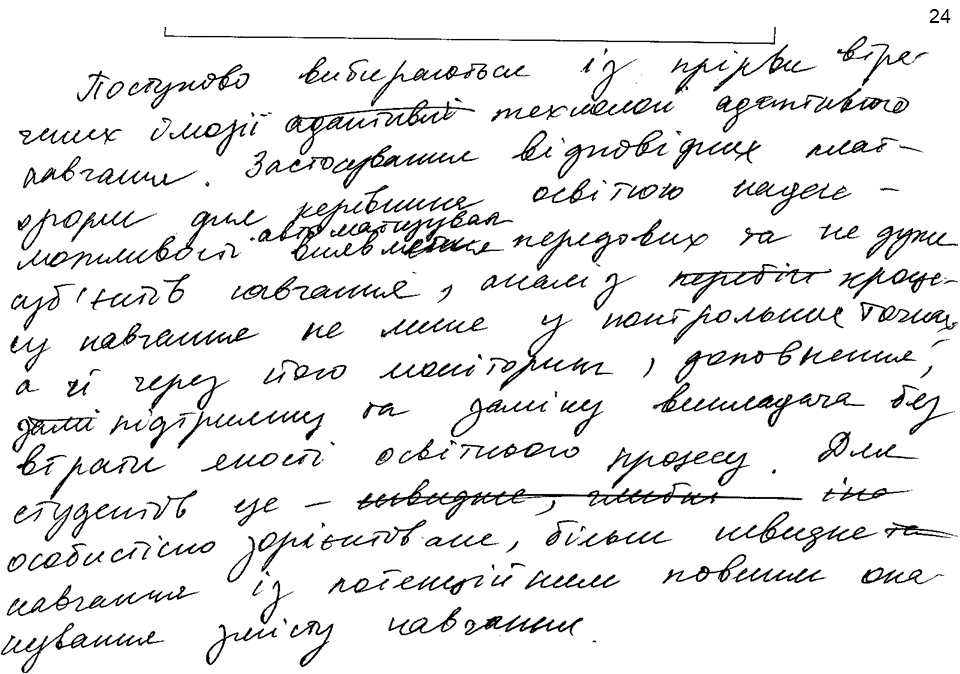 24
Поступово вибираються із прірви втра-
чених ілюзії адаптивні технології адаптивного
навчання. Застосування відповідних плат-
форм для керівника освітою надає -
можливості автоматизував
виявлення передових та не дуже
суб'єктів навчання, аналіз перебіг проце-
су навчання не лише у контрольних точках,
а й через його моніторинг, доповнення,
замі підтримку та заміну викладача без
втрати якості освітнього процесу. Для
студентів це – швидше, глибш іно
особистісно зорієнтоване, більш швидке та
навчання із потенційним повним опа-
нування змісту навчання.